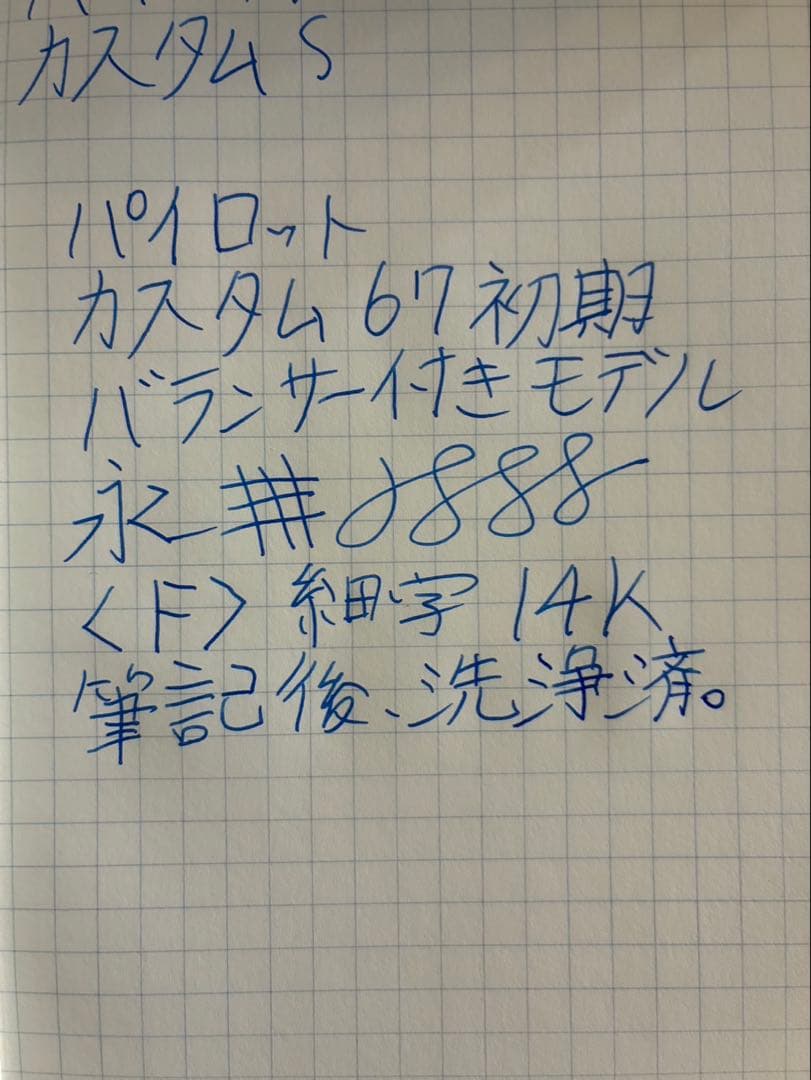 カスタムS
パイロット
カスタム67初期
バランサー付きモデル
永
<F> 細字 14K
筆記後、洗浄済。